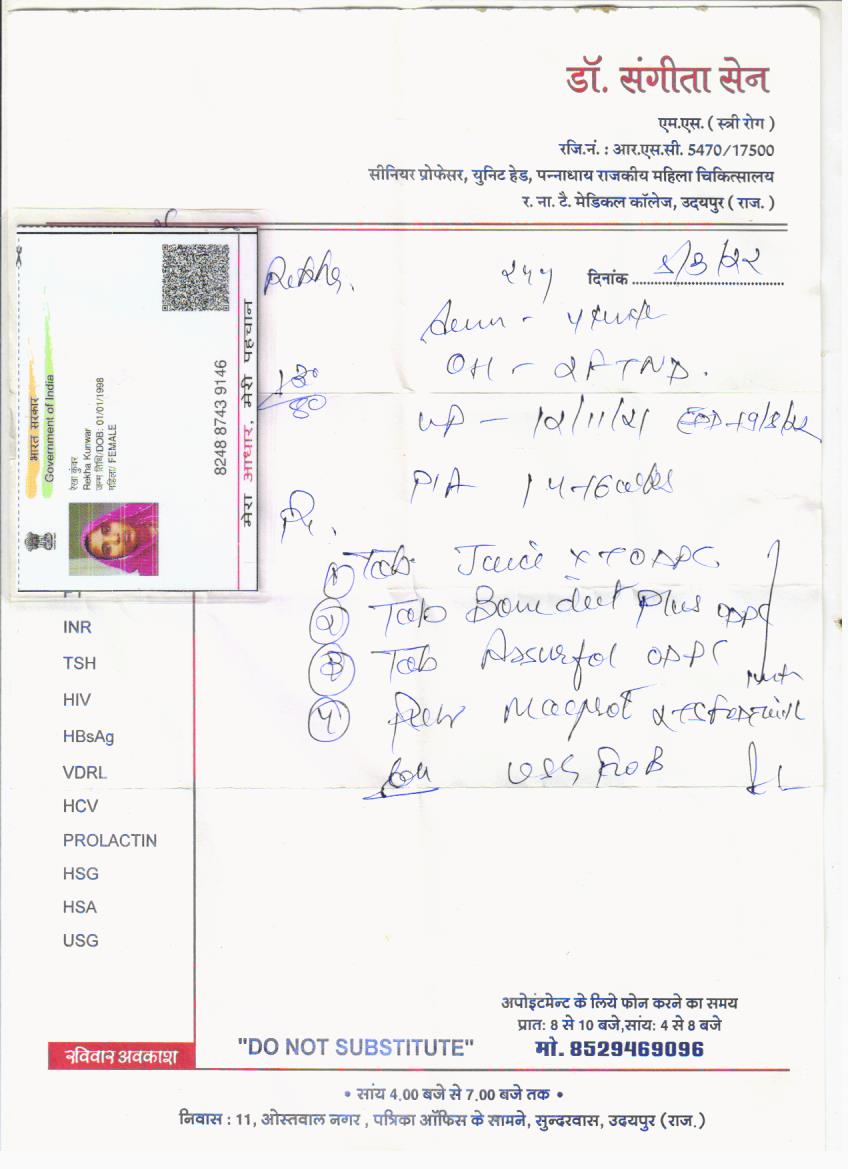 डॉ. संगीता सेन
एम.एस. ( स्त्री रोग )
रजि.नं. : आर.एस.सी. 5470/17500
सीनियर प्रोफेसर, युनिट हेड, पन्नाधाय राजकीय महिला चिकित्सालय
र. ना. टै. मेडिकल कॉलेज, उदयपुर ( राज. )
भारत सरकार
Government of India
रेखा कुंवर
Rekha Kunwar
जन्म तिथि/DOB: 01/01/1998
महिला/ FEMALE
8248 8743 9146
मेरा आधार, मेरी पहचान
Rekha. २४y दिनांक 8/3/22
OH -
- 12/11/21 EDD-19/8/22
P/A 14-16 weeks
① Tab
② Tab Plus
③ Tab Assurfol
④
USG
INR
TSH
HIV
HBsAg
VDRL
HCV
PROLACTIN
HSG
HSA
USG
अपोइंटमेन्ट के लिये फोन करने का समय
प्रात: 8 से 10 बजे,सांय: 4 से 8 बजे
रविवार अवकाश "DO NOT SUBSTITUTE" मो. 8529469096
• सांय 4.00 बजे से 7.00 बजे तक •
निवास : 11, ओस्तवाल नगर , पत्रिका ऑफिस के सामने, सुन्दरवास, उदयपुर (राज.)